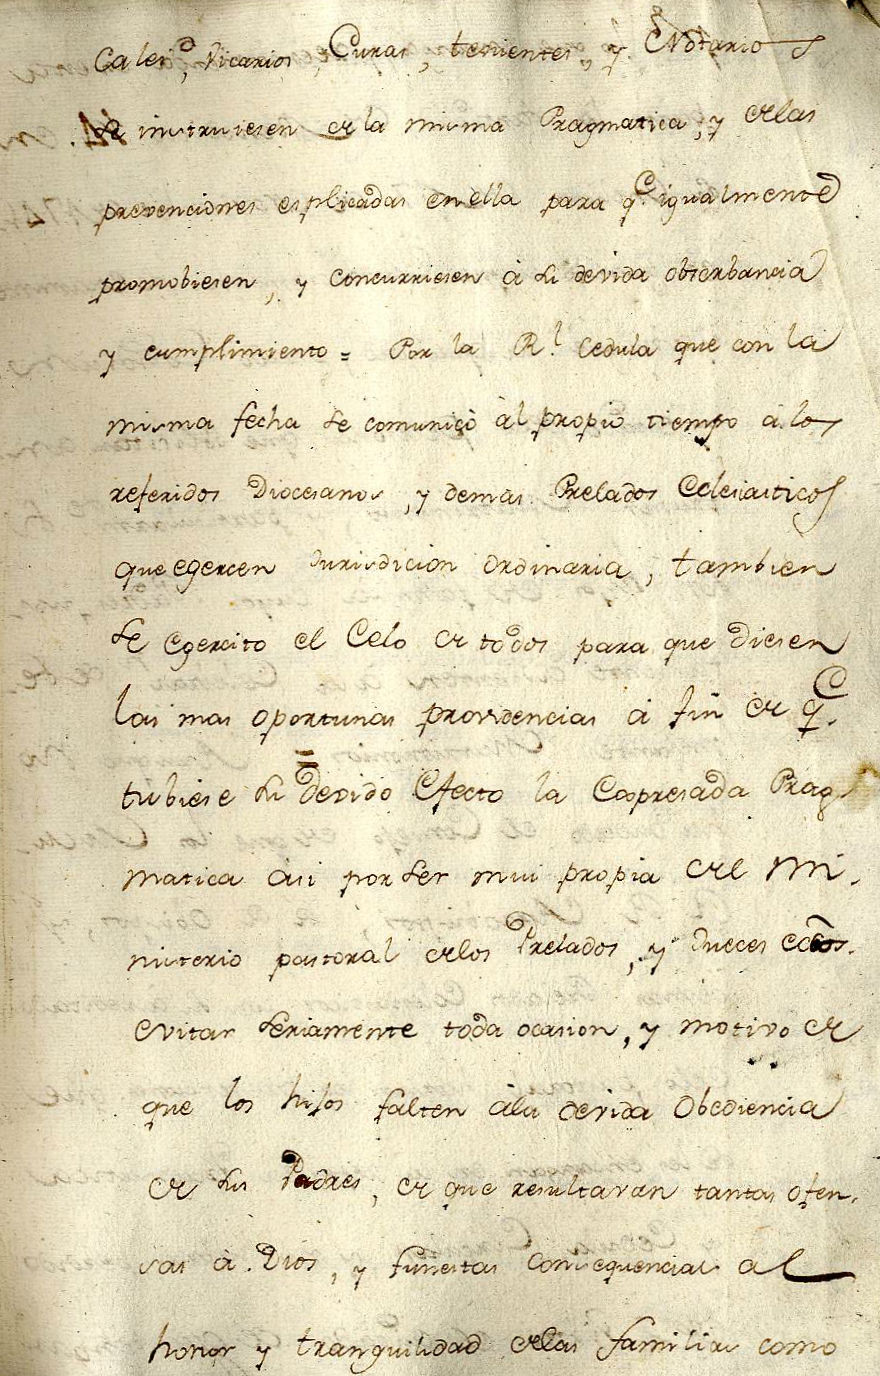 cales, Vicarios, Curas, tenientes, y Notarios
se instruiesen de la misma Pragmatica, y de las
prevenciones esplicadas en ella para qe. igualmente
promobiesen, y concurriesen à su devida obserbancia
y cumplimiento = Por la Rl. cedula que con la
misma fecha se comunicò àl propio tiempo à los
referidos Diocesanos, y demas Prelados Eclesiasticos
que egercen Jurisdicion ordinaria, tambien
se egercito el Celo de todos para que diesen
las mas oportunas providencias à fin de qe.
tubiese su devido Efecto la Expresada Prag
matica asi por ser mui propia del Mi-
nisterio pastoral de los Prelados, y Jueces eccos.
evitar seriamente toda ocasion, y motivo de
que los hijos falten àla devida Obediencia
de sus Padres, de que resultavan tantas ofen-
sas à Dios, y funestas consequencias al
honor y tranquilidad de las familias como